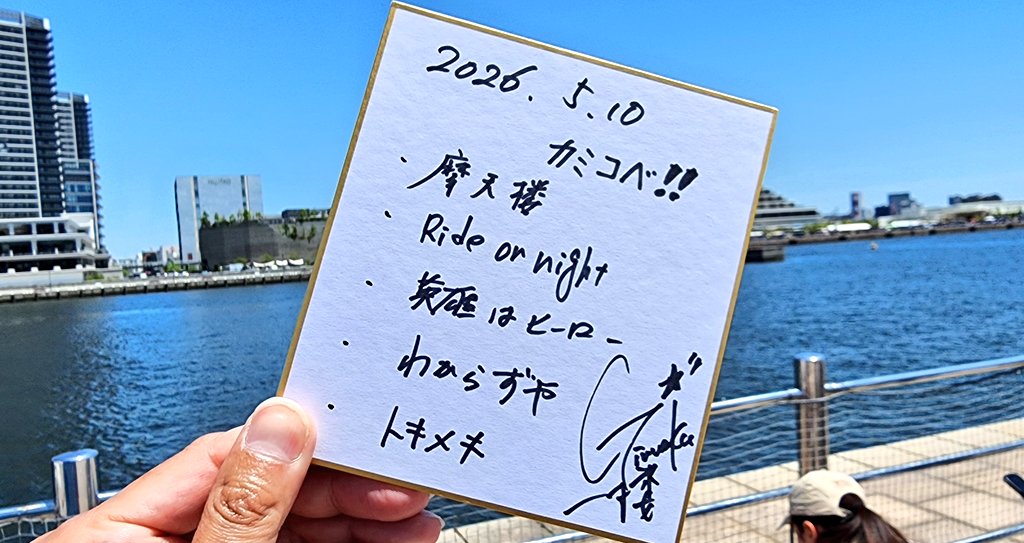 2026. 5.10
カミコベ!!
・摩天楼
・Ride on night
・英雄はヒーロー
・わからずや
・トキメキ